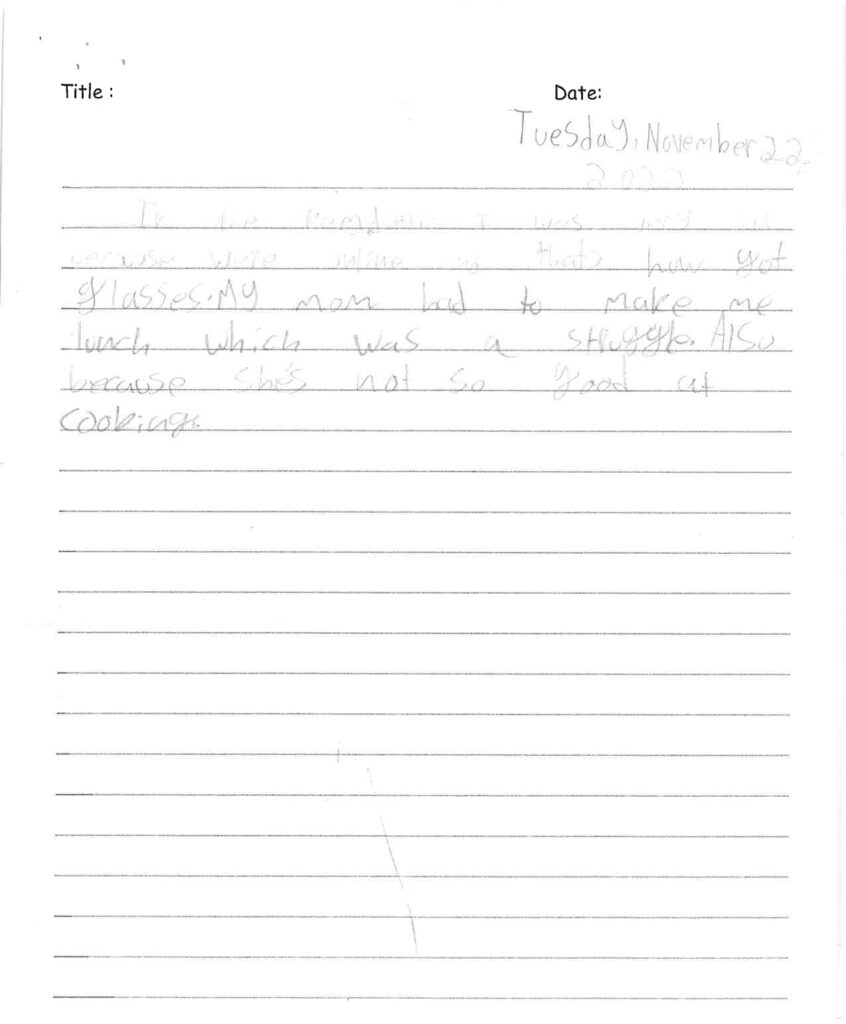 Title :
Date:
Tuesday, November 22
2022
In the I was
because were online thats how got
glasses. My mom had to make me
lunch which was a struggle. Also
because she's not so good at
cooking.